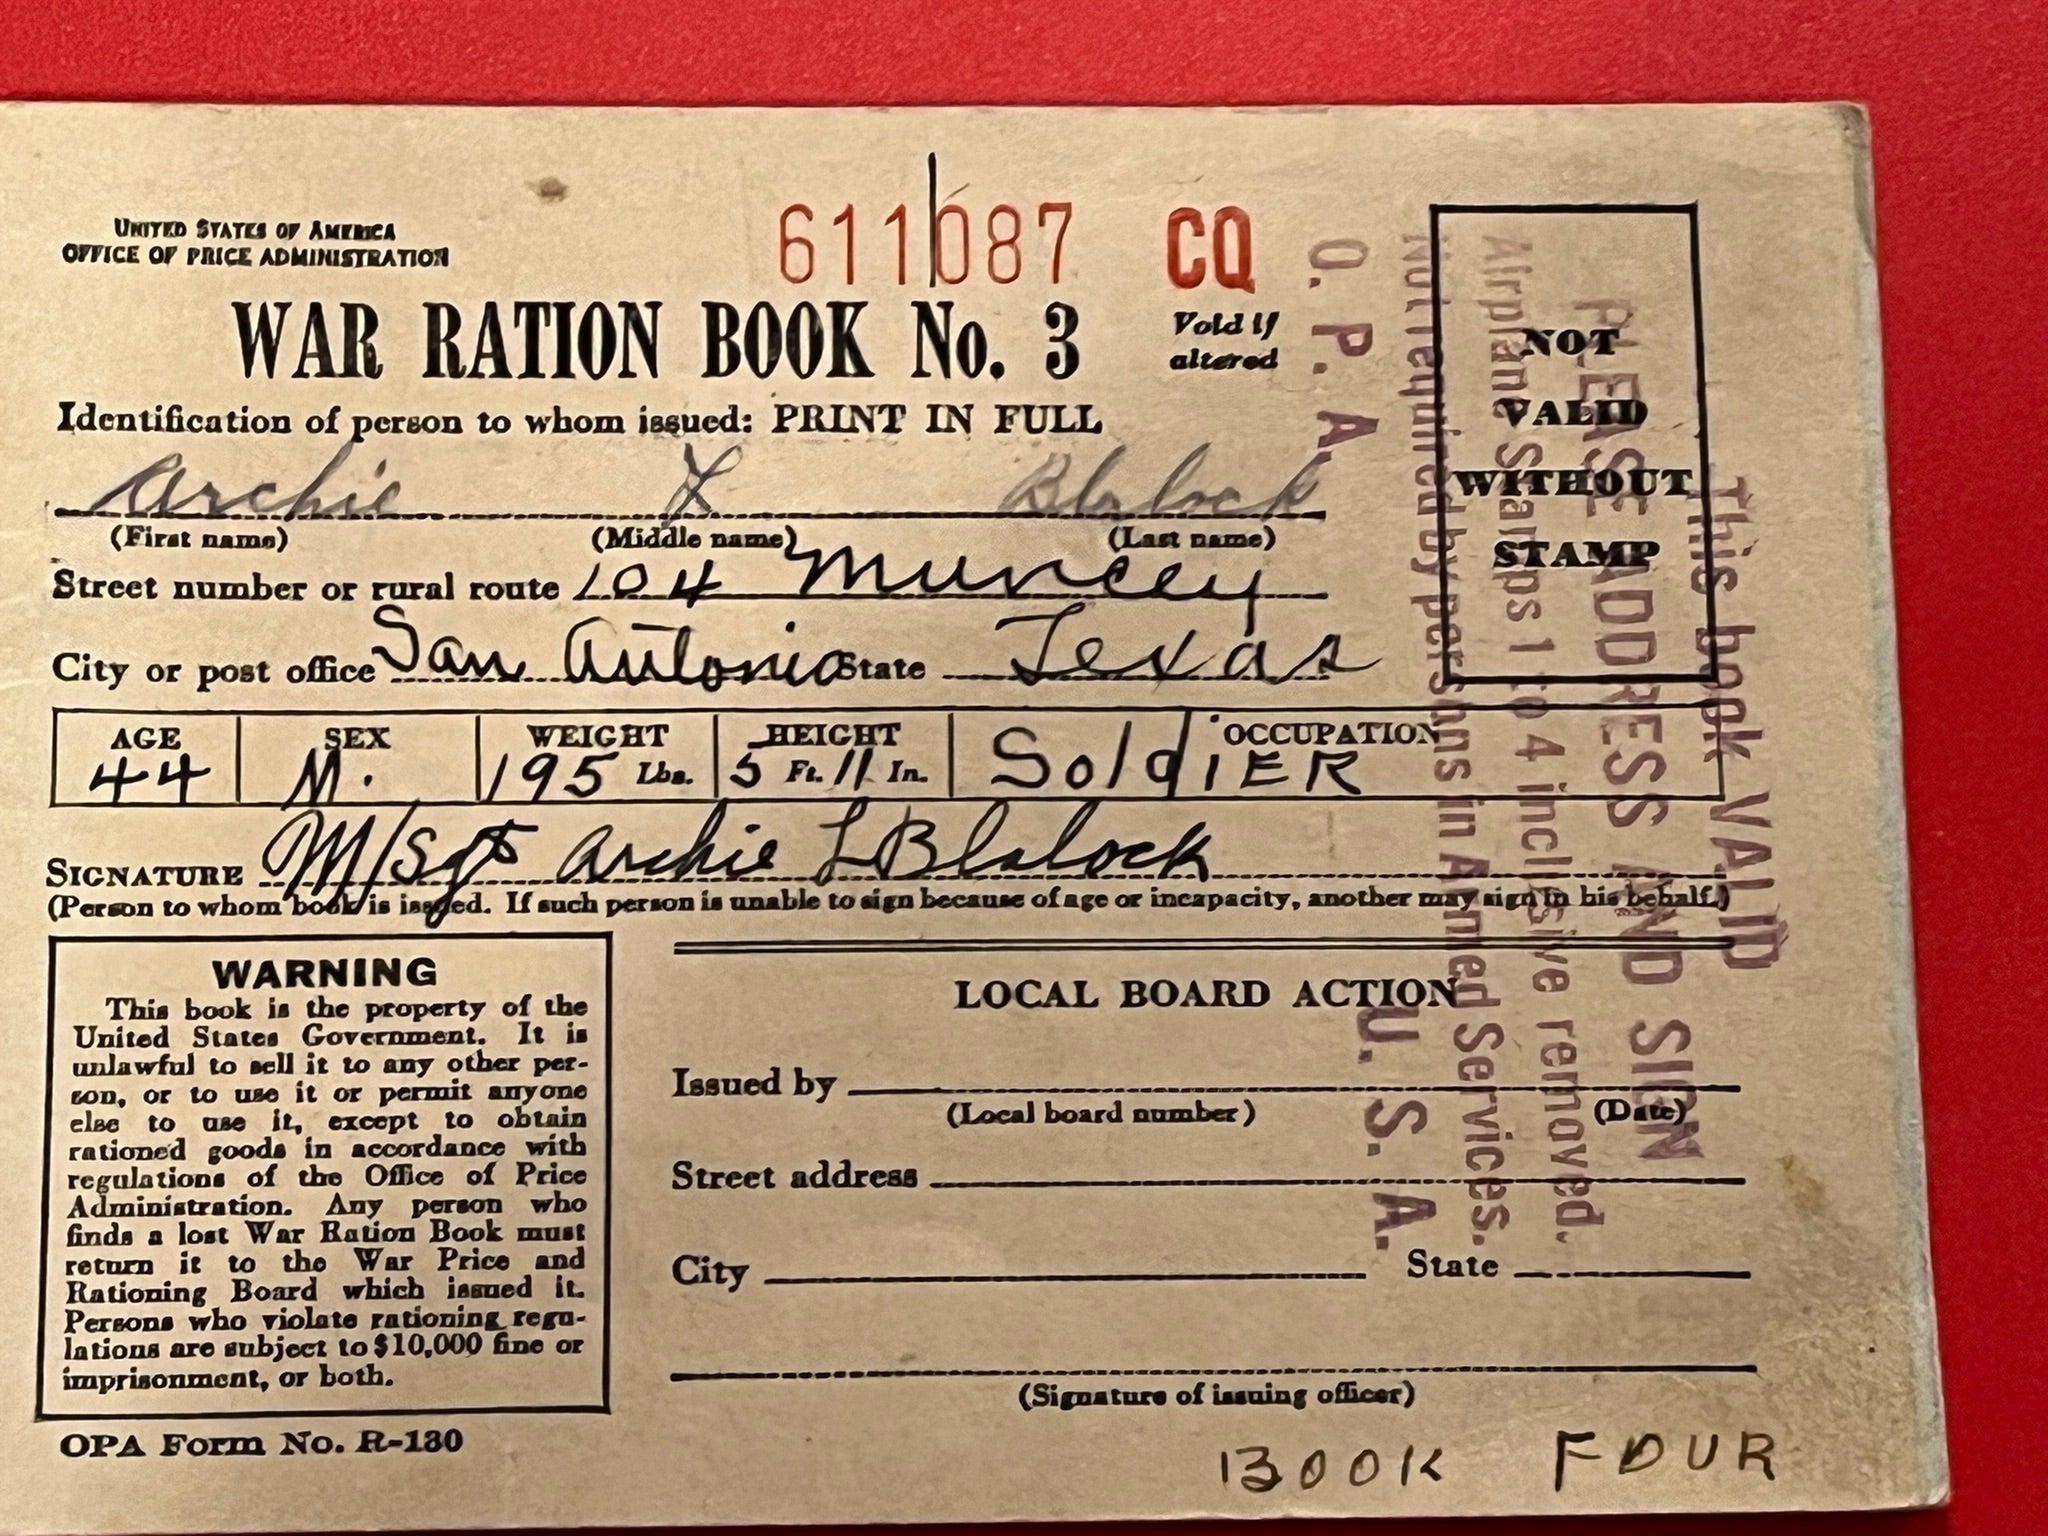 UNITED STATES OF AMERICA
OFFICE OF PRICE ADMINISTRATION
611087 CQ
WAR RATION BOOK No. 3
Void if
altered
Identification of person to whom issued: PRINT IN FULL
Archie L Blalock
(First name) (Middle name) (Last name)
Street number or rural route 104 Muncey
City or post office San Antonio State Texas
AGE SEX WEIGHT HEIGHT OCCUPATION
44 M. 195 Lbs. 5 Ft. 11 In. SoldiER
SIGNATURE M/Sgt Archie L Blalock
(Person to whom book is issued. If such person is unable to sign because of age or incapacity, another may sign in his behalf.)
NOT
VALID
WITHOUT
STAMP
This book VALID
PLEASE ADDRESS AND SIGN
Airplane Stamps 1 to 4 inclusive removed.
Not required by persons in Armed Services.
O. P. A. U. S. A.
WARNING
This book is the property of the
United States Government. It is
unlawful to sell it to any other per-
son, or to use it or permit anyone
else to use it, except to obtain
rationed goods in accordance with
regulations of the Office of Price
Administration. Any person who
finds a lost War Ration Book must
return it to the War Price and
Rationing Board which issued it.
Persons who violate rationing regu-
lations are subject to $10,000 fine or
imprisonment, or both.
OPA Form No. R-130
LOCAL BOARD ACTION
Issued by
(Local board number) (Date)
Street address
City State
(Signature of issuing officer)
BOOK FOUR